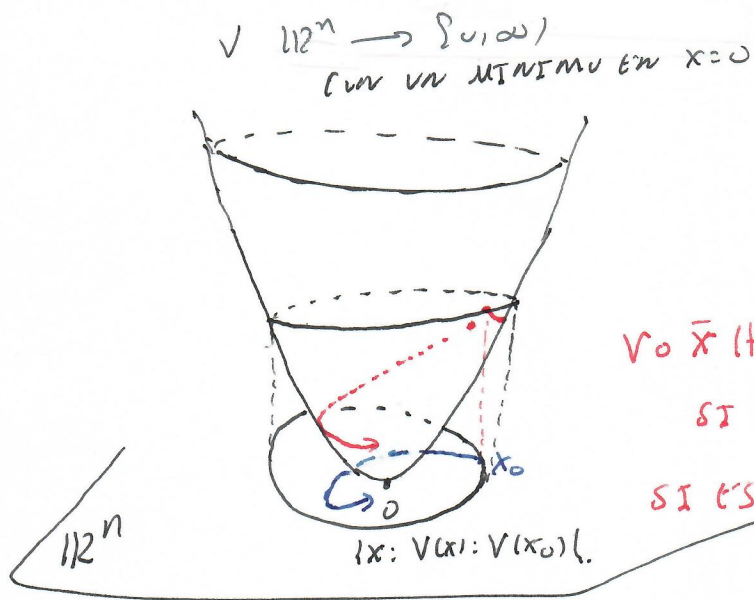 V ℝⁿ → [0,∞)
CON UN MINIMO EN x=0
V o x̄ (t
SI
SI ES
x₀
0
ℝⁿ
{x: V(x): V(x₀)}.